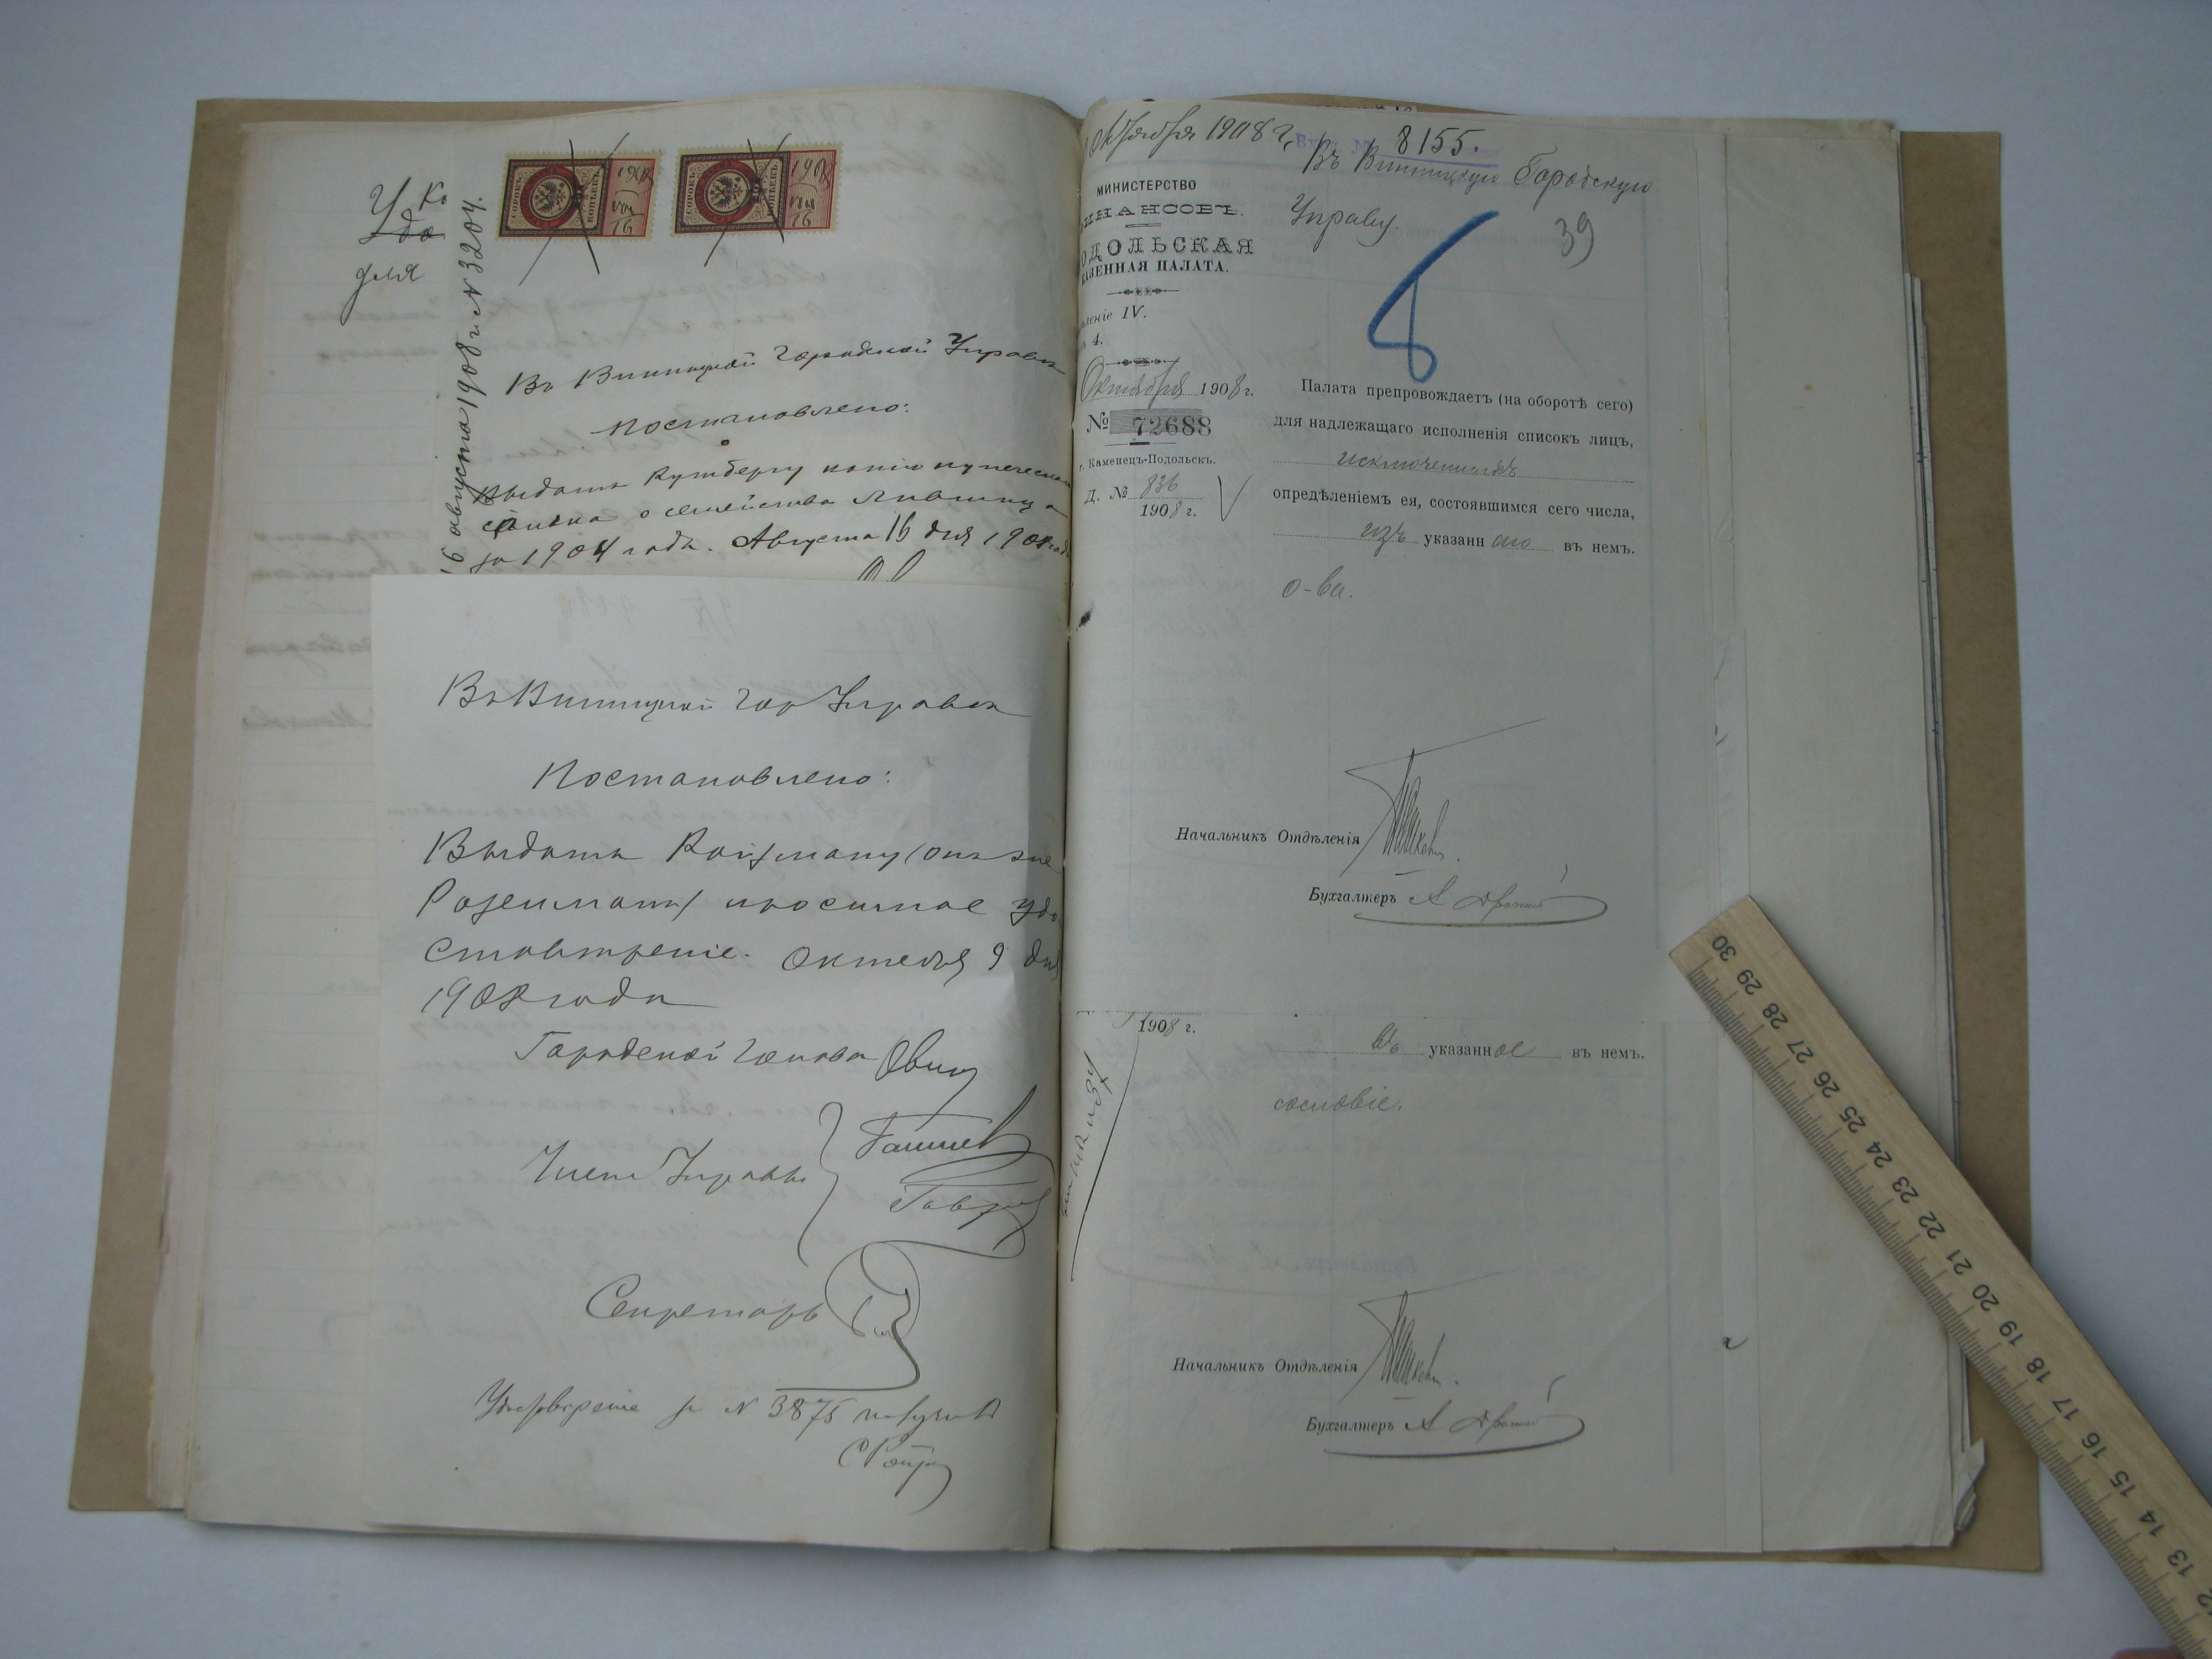 У Ко
для
16 августа 1908 г. № 3204.
СОРОКЪ
КОПѢЕКЪ
1908
VIII
16
СОРОКЪ
КОПѢЕКЪ
1908
VIII
16
Въ Винницкой Городской Управѣ
постановлено:
Выдать Кутбергу копію купеческаго
списка о семействѣ
за 1904 годъ. Августа 16 дня 1908 года
Въ Винницкой Гор Управѣ
Постановлено:
Выдать Ройзману (онъ же
Розенманъ) просимое удо
стовѣреніе. Октября 9 дня
1908 года
Городской Голова
Члены Управы
Секретарь
Удостовѣреніе за № 3875 получилъ
Октября 1908 г.
8155.
Въ Винницкую Городскую
Управу.
39
8
МИНИСТЕРСТВО
ИНАНСОВЪ.
ОДОЛЬСКАЯ
КАЗЕННАЯ ПАЛАТА.
леніе IV.
4.
Октября 1908 г.
№ 72688
г. Каменецъ-Подольскъ.
Д. № 836
1908 г.
Палата препровождаетъ (на оборотѣ сего)
для надлежащаго исполненія списокъ лицъ,
исключенныхъ
опредѣленіемъ ея, состоявшимся сего числа,
изъ указаннаго въ немъ.
о-ва.
Начальникъ Отдѣленія
Бухгалтеръ
1908 г.
въ указанное въ немъ.
сословіе.
Начальникъ Отдѣленія
Бухгалтеръ
30 29 28 27 26 25 24 23 22 21 20 19 18 17 16 15 14 13 12